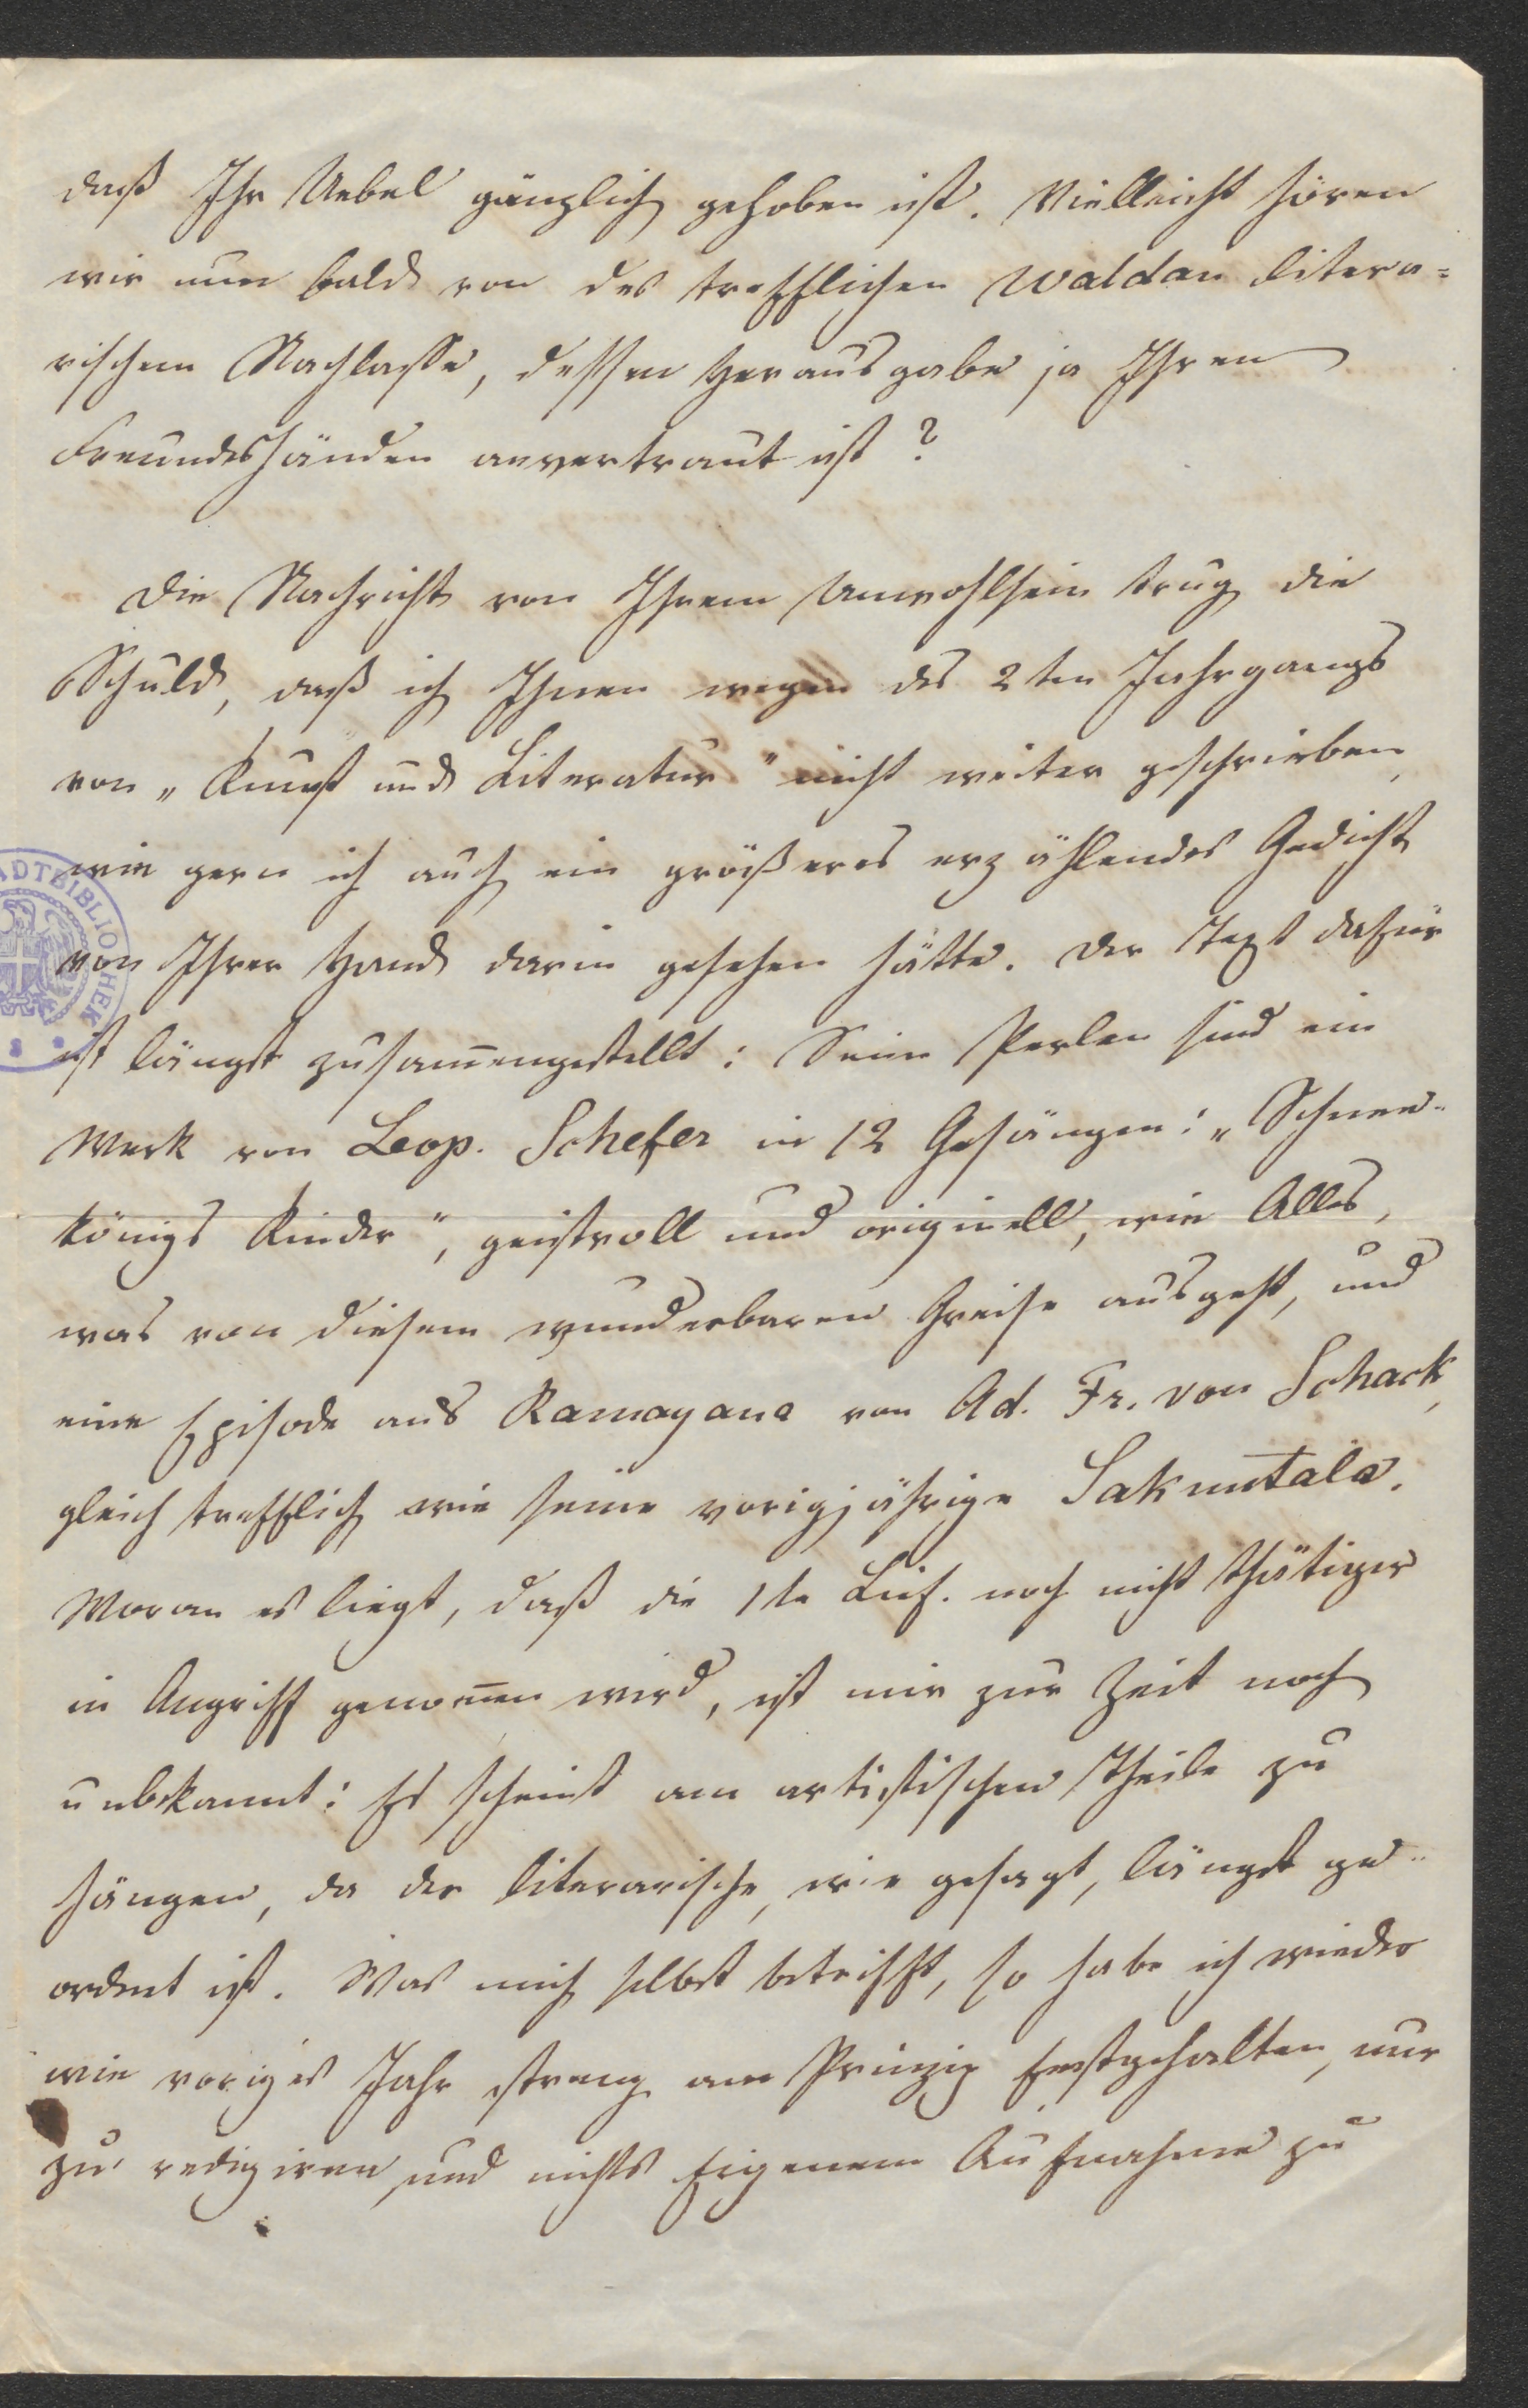 daß Ihr Uebel gänzlich gehoben ist. Vielleicht hören
wir nun bald von des trefflichen Waldau litera=
rischem Nachlasse, dessen Herausgabe ja Ihren
Freundeshänden anvertraut ist?
Die Nachricht von Ihrem Unwohlsein trug die
Schuld, daß ich Ihnen wegen des 2ten Jahrgangs
von „Kunst und Literatur" nicht weiter geschrieben,
wie gern ich auch ein größeres erzählendes Gedicht
von Ihrer Hand darin gesehen hätte. Der Text dafür
ist längst zusam̄engestellt: Seine Perlen sind ein
Werk von Leop. Schefer in 12 Gesängen: „Schnee-
königs Kinder", geistvoll und originell, wie Alles,
was von diesem wunderbaren Greise ausgeht, und
eine Episode aus Ramayana von Ad. Fr. von Schack,
gleich trefflich wie seine vorigjährige Sakuntala.
Woran es liegt, daß die 1te Lief. noch nicht thätiger
in Angriff genom̄en wird, ist mir zur Zeit noch
unbekannt: Es scheint am artistischen Theile zu
hängen, da der literarische, wie gesagt, längst ge-
ordnet ist. Was mich selbst betrifft, so habe ich wieder
wie voriges Jahr streng am Prinzip festgehalten, nur
zu redigiren und nichts Eigenem Aufnahme zu
ADTBIBLIOTHEK